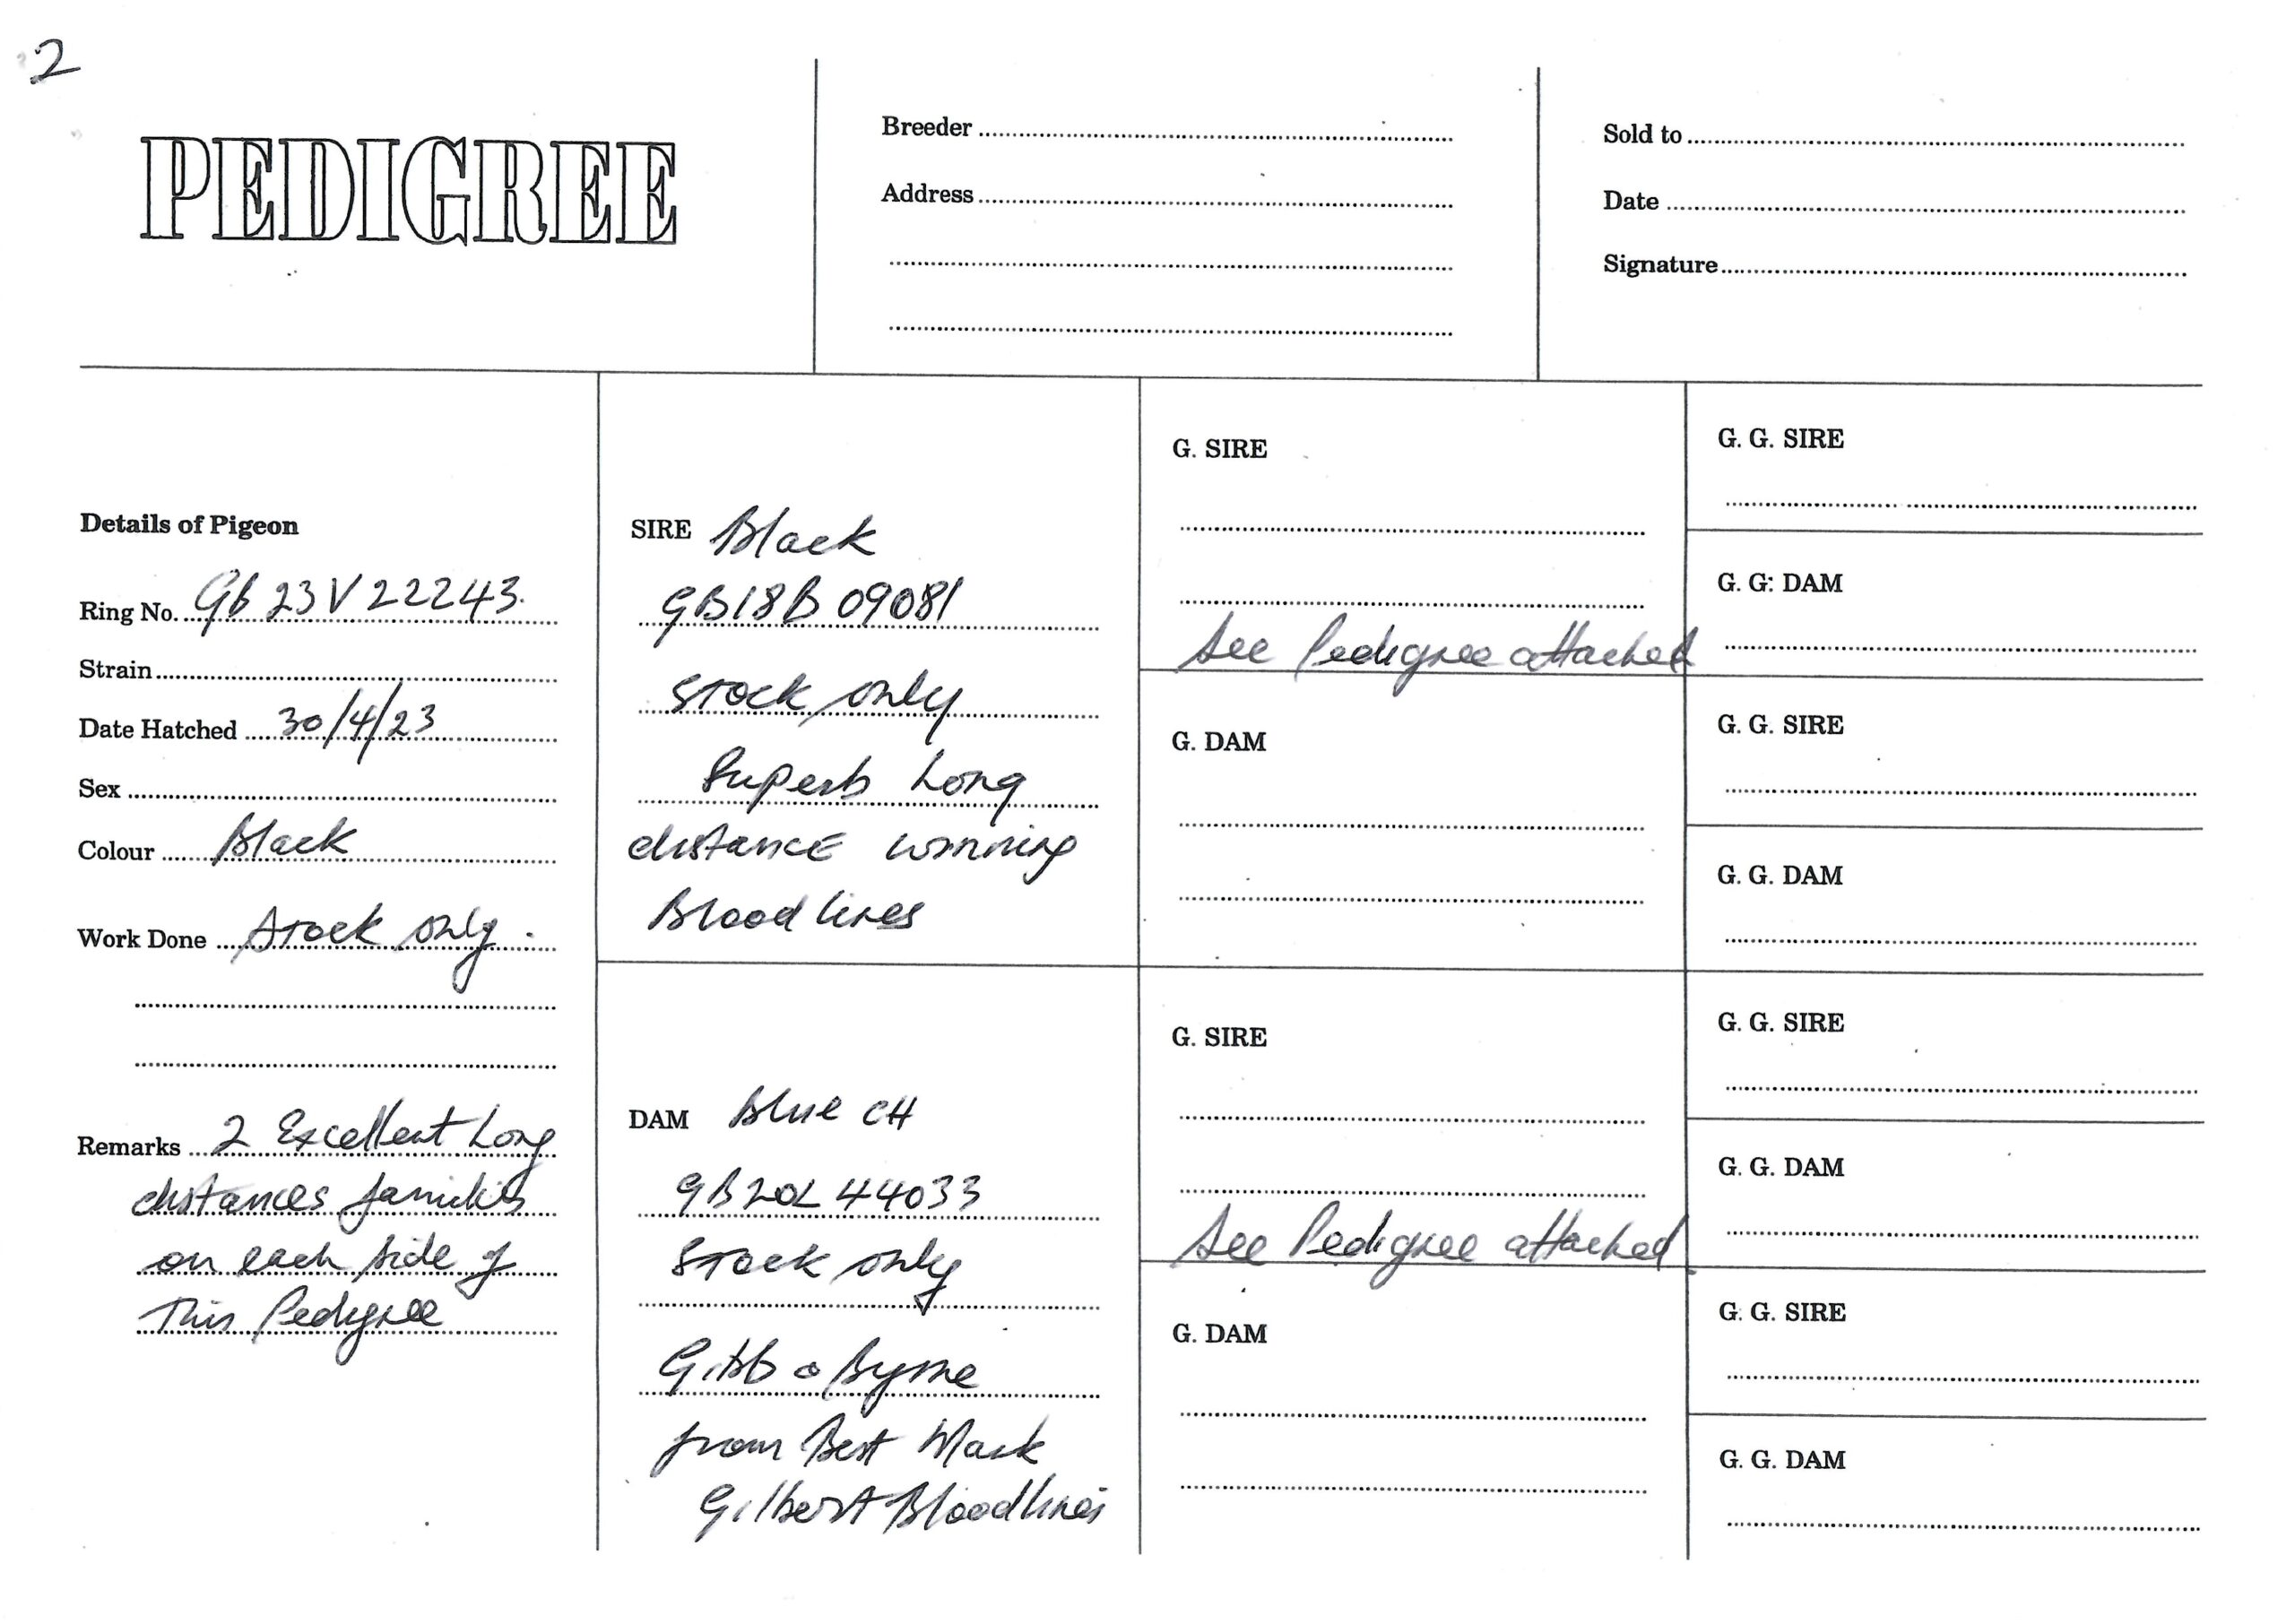 2
PEDIGREE
Breeder
Address
Sold to
Date
Signature
Details of Pigeon
Ring No. GB 23 V 22243.
Strain
Date Hatched 30/4/23
Sex
Colour Black
Work Done Stock only.
Remarks 2 Excellent Long
distances families
on each side of
This Pedigree
SIRE Black
GB18B 09081
Stock only
Superb Long
distance winning
Bloodlines
DAM Blue CH
GB20L 44033
Stock only
Gibb & Byrne
from Best Mark
Gilbert Bloodlines
G. SIRE
See Pedigree attached
G. DAM
G. SIRE
See Pedigree attached
G. DAM
G. G. SIRE
G. G: DAM
G. G. SIRE
G. G. DAM
G. G. SIRE
G. G. DAM
G. G. SIRE
G. G. DAM